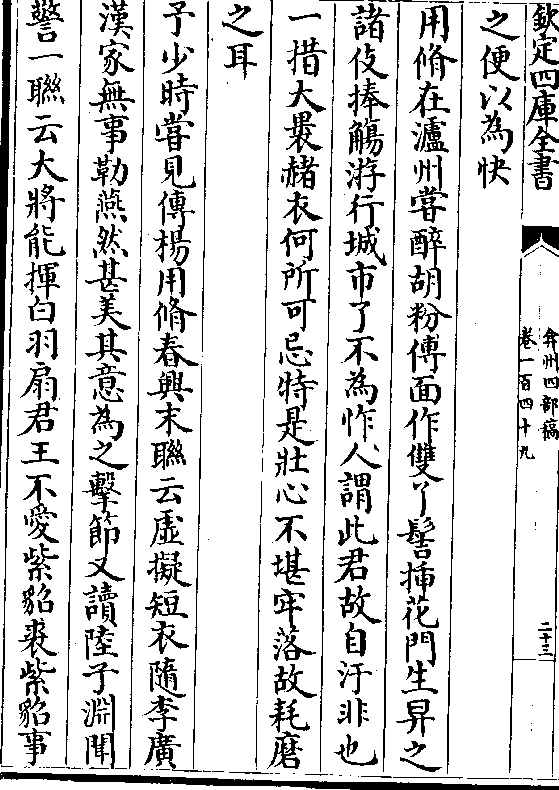 欽定四庫全書
弇州四部稿
卷一百四十九
二十三
之便以為快
用脩在瀘州嘗醉胡粉傅面作雙丫髻插花門生舁之
諸伎捧觴游行城市了不為怍人謂此君故自汙非也
一措大褁赭衣何所可忌特是壯心不堪牢落故耗磨
之耳
予少時嘗見傳楊用脩春興末聯云虛擬短衣隨李廣
漢家無事勒燕然甚美其意為之擊節又讀陸子淵聞
警一聯云大將能揮白羽扇君王不愛紫貂裘紫貂事